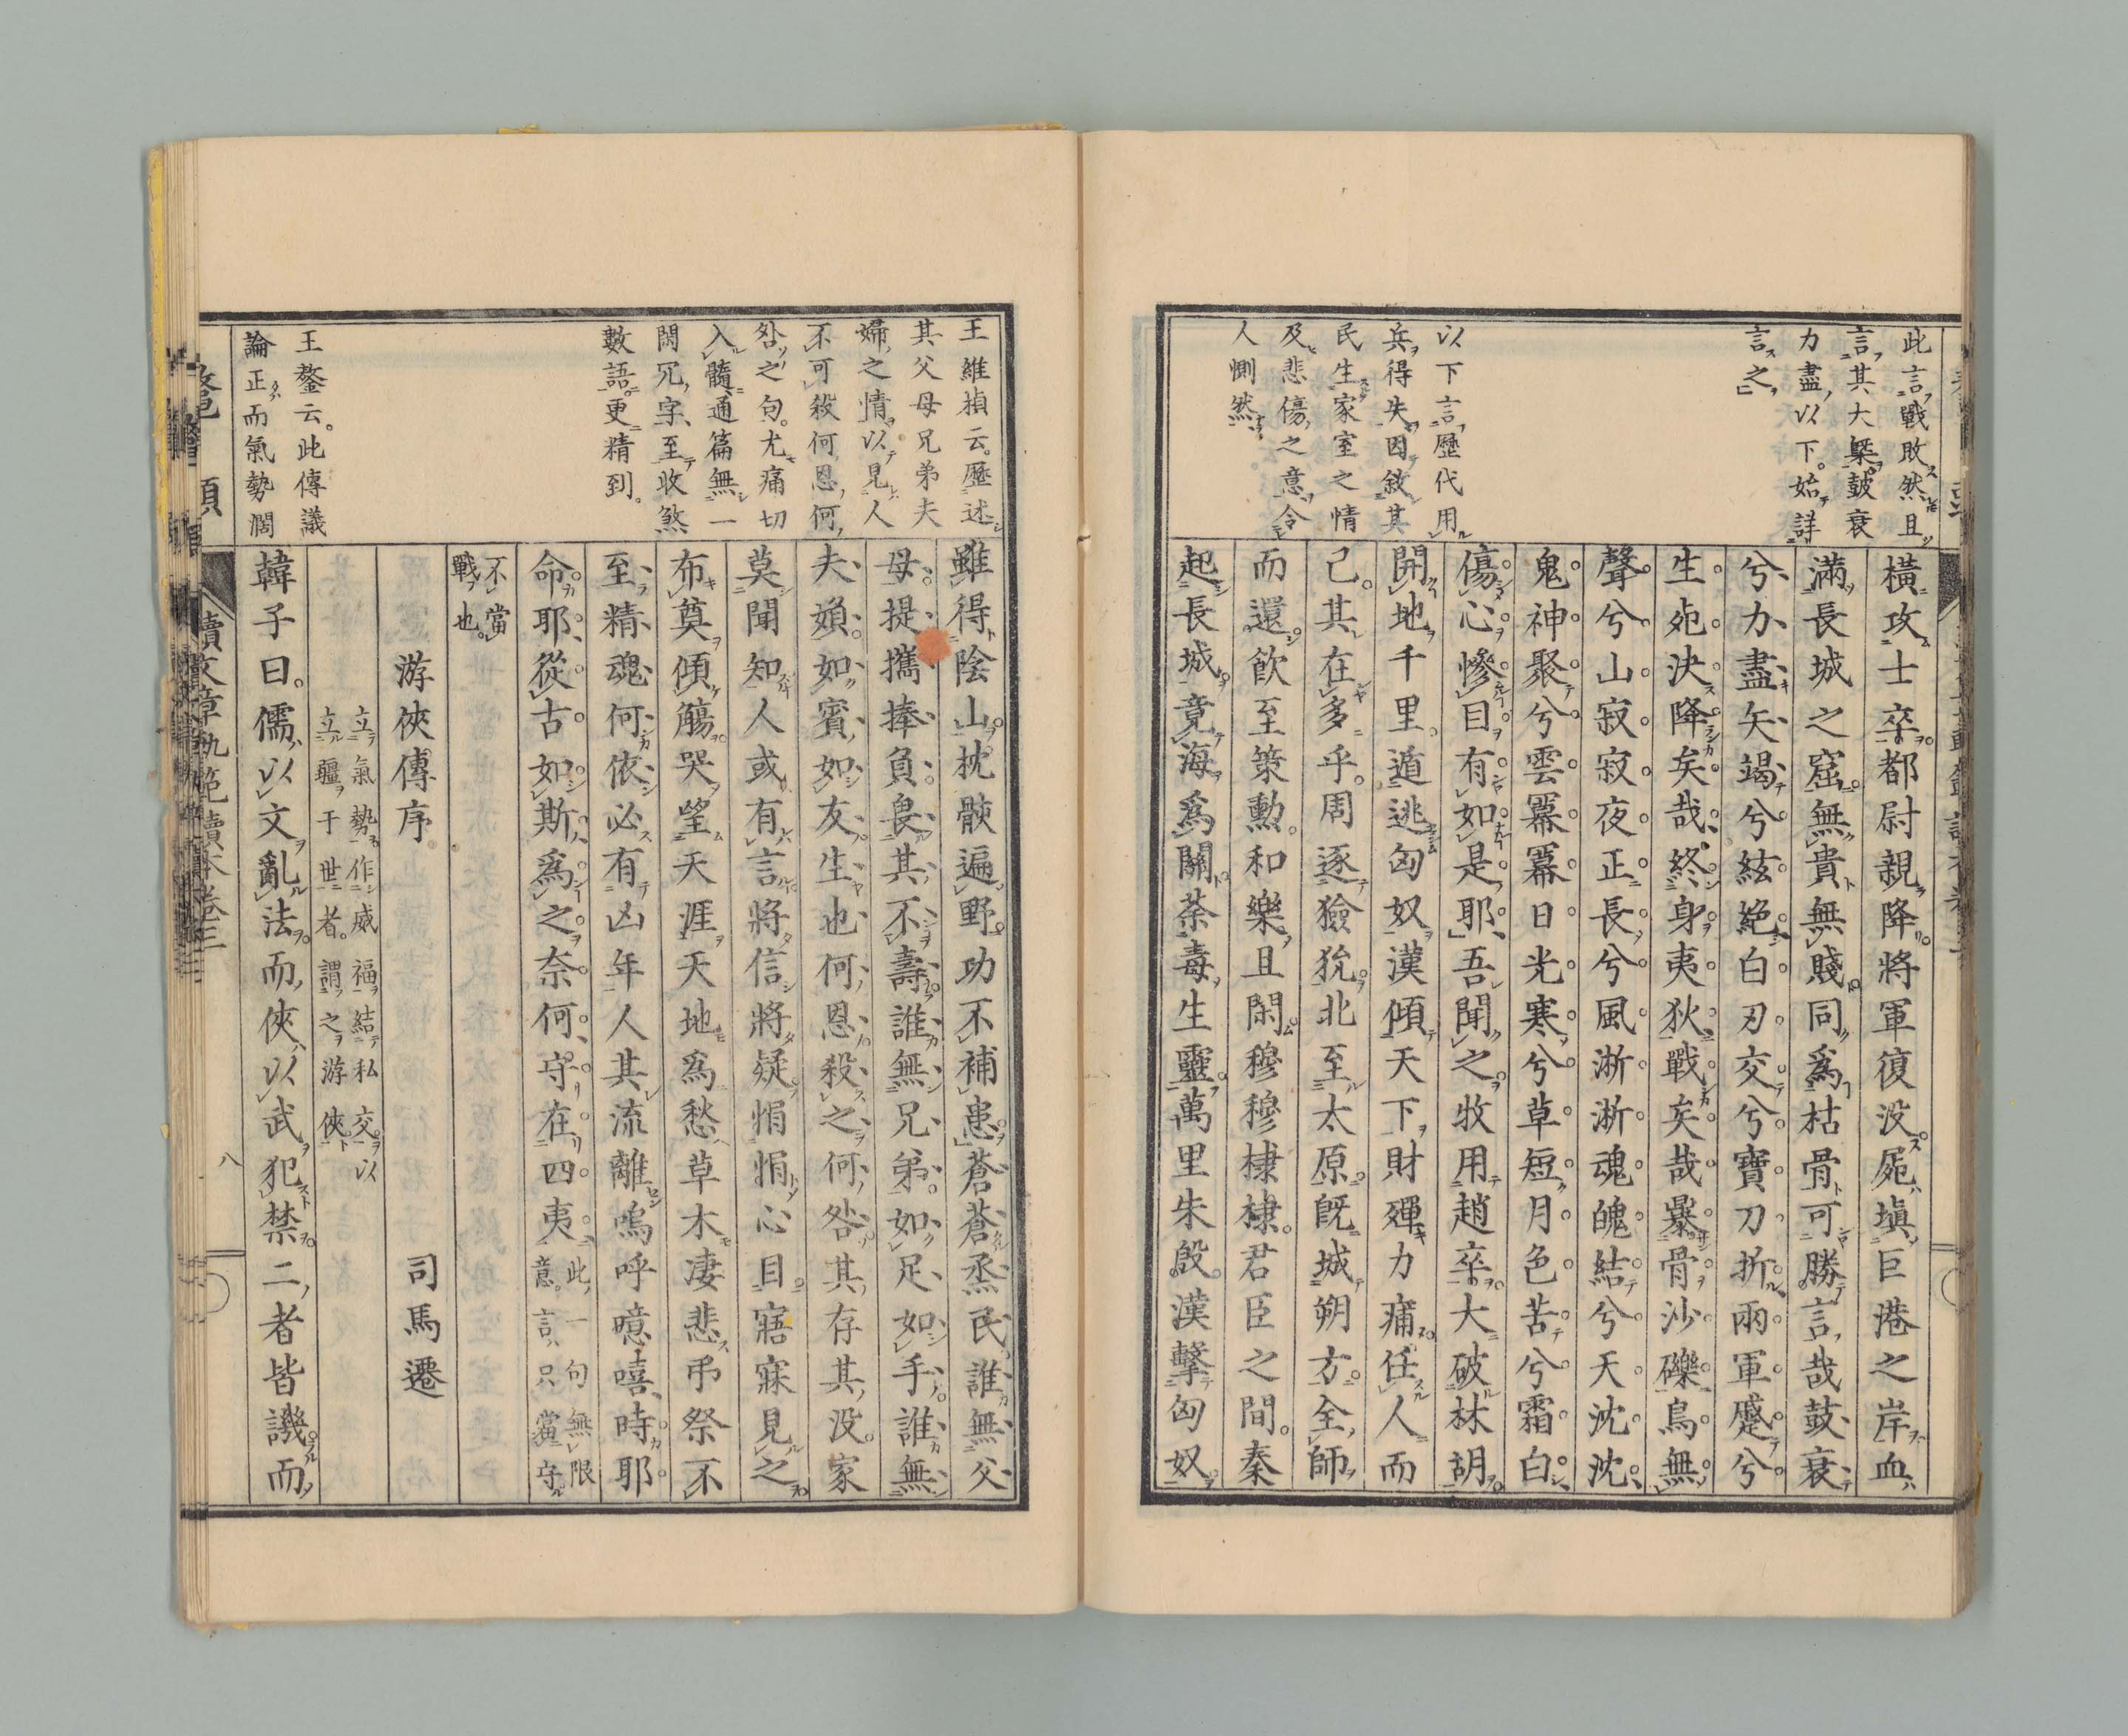 此言戰敗然且
言其大槩。鼓衰
力盡以下。始詳
言之
以下言歷代用
兵得失因敘其
民生家室之情
及悲傷之意令
人惻然
橫攻士卒都尉親降將軍復没屍塡巨港之岸血
滿長城之窟無貴無賤同爲枯骨可勝言哉鼓衰
兮力盡矢竭兮絃絕白刃交兮寶刀折兩軍蹙兮
生死決降矣哉終身夷狄戰矣哉暴骨沙礫鳥無
聲兮山寂寂夜正長兮風淅淅魂魄結兮天沈沈
鬼神聚兮雲羃羃日光寒兮草短月色苦兮霜白
傷心慘目有如是耶吾聞之牧用趙卒大破林胡
開地千里。遁逃匈奴漢傾天下財殫力痡任人而
已。其在多乎。周逐獫狁北至太原旣城朔方全師
而還飮至策勳。和樂且閑穆穆棣棣。君臣之間。秦
起長城竟海爲關荼毒生靈萬里朱殷。漢擊匈奴
王維楨云。歷述
其父母兄弟夫
婦之情以見人
不可殺何恩何
咎之句。尤痛切
入髓通篇無一
閑冗字至收煞
數語更精到。
王鏊云。此傳議
論正而氣勢濶
雖得陰山枕骸遍野功不補患蒼蒼烝民誰無父
母提攜捧負畏其不壽誰無兄弟如足如手誰無
夫婦如賓如友生也何恩殺之何咎其存其没。家
莫聞知人或有言將信將疑悁悁心目寤寐見之
布奠傾觴哭望天涯天地爲愁草木凄悲弔祭不
至精魂何依必有凶年人其流離嗚呼噫嘻時耶
命耶從古如斯爲之奈何守在四夷
此一句無限
意。言只當守
不當
戰也
游俠傳序
司馬遷
立氣勢作威福結私交以
立疆于世者。謂之游俠
韓子曰。儒以文亂法而俠以武犯禁二者皆譏而
續文章軌範讀本卷三
八